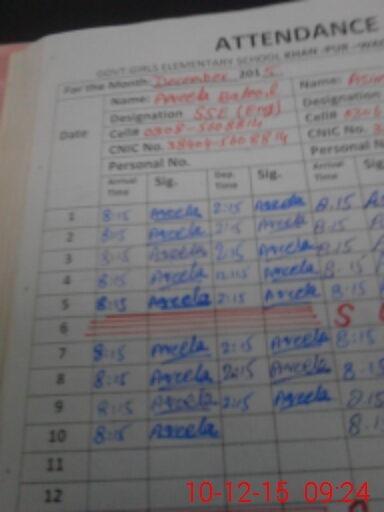 ATTENDANCE
GOVT GIRLS ELEMENTARY SCHOOL KHAN -PUR
For the Month December 2015
Name: Aneela Batool Name:
Designation SSE (Eng) Designation
Cell# 0308- Cell# 
CNIC No. CNIC No.
Date Personal No. Personal
Arrival Time Sig. Dep. Time Sig. Arrival Time Sig.
1 8:15 Aneela 2:15 Aneela 8.15
2 8:15 Aneela 2:15 Aneela 8.15
3 8:15 Aneela 2:15 Aneela 8.15
4 8:15 Aneela Aneela 8.15
5 8:15 Aneela 2:15 Aneela 8.15
6 S
7 8:15 Aneela 2:15 Aneela 8:15
8 8:15 Aneela 2:15 Aneela 8.15
9 8:15 Aneela 2:15 Aneela 8.15
10 8:15 Aneela 8.15
11
12
10-12-15 09:24